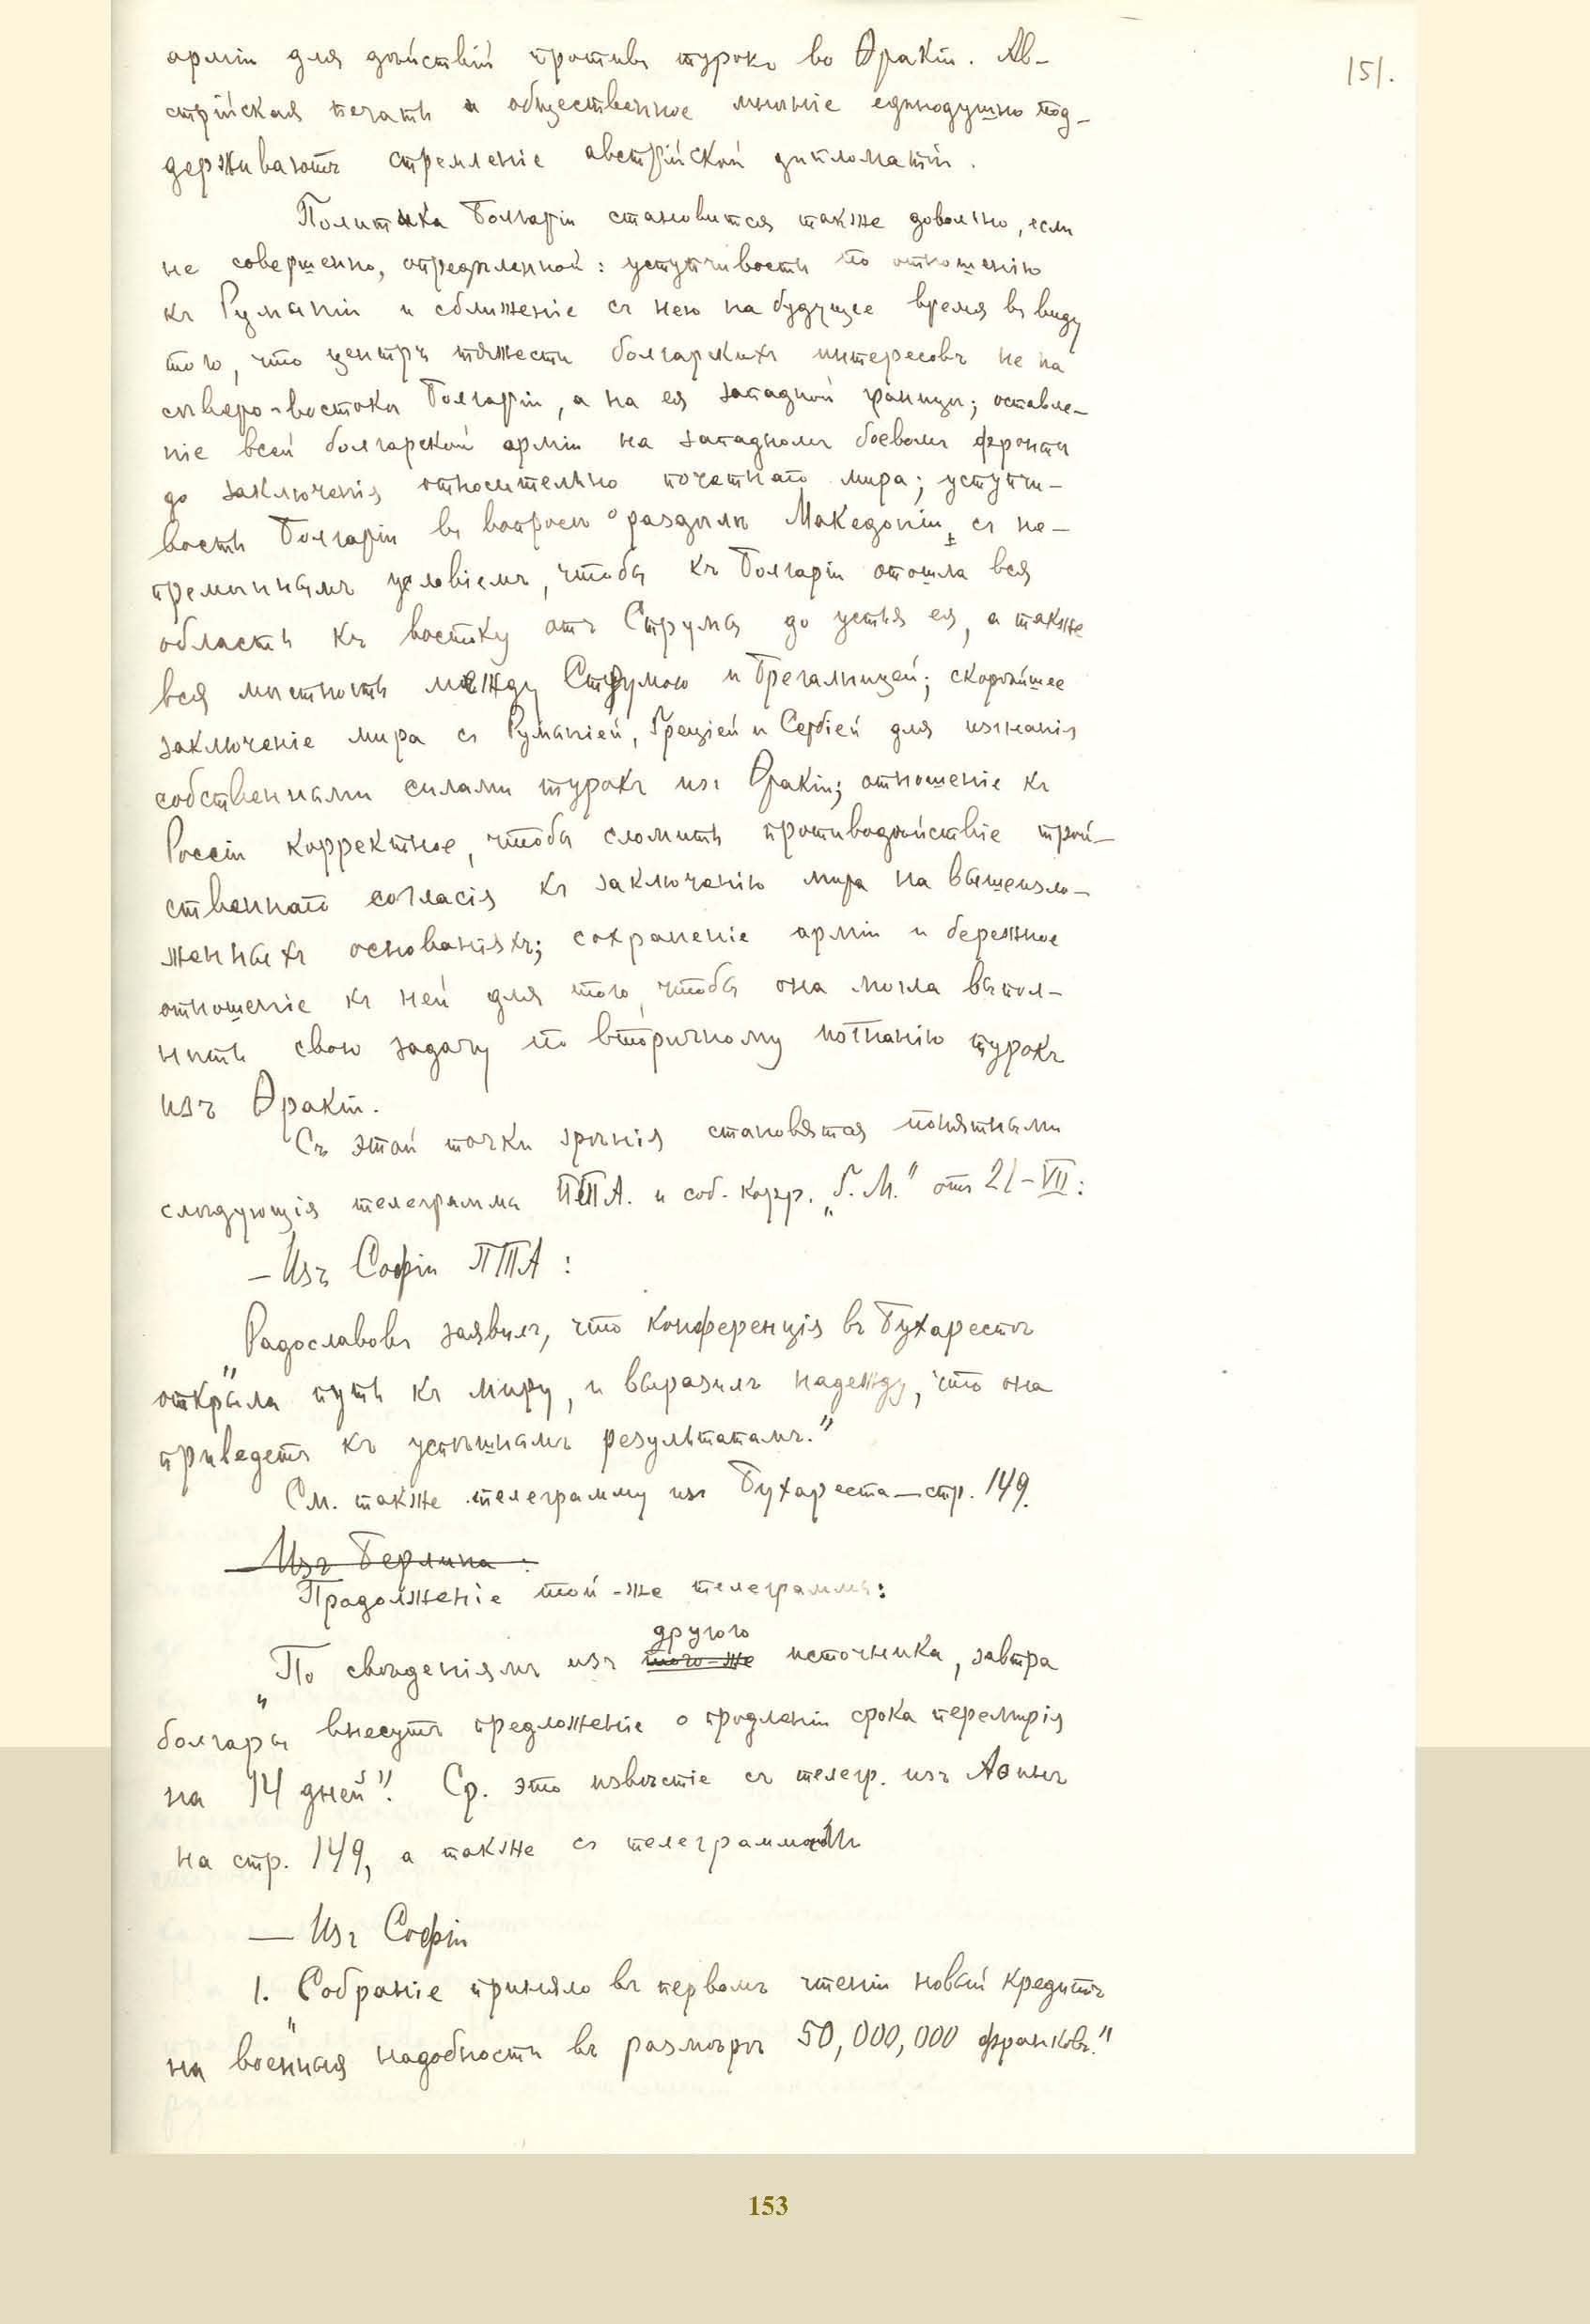 151.
арміи для дѣйствій противъ турокъ во Ѳракіи. Ав-
стрійская печать и общественное мнѣніе единодушно под-
держиваютъ стремленіе австрійской дипломатіи.
Политика Болгаріи становится также довольно, если
не совершенно, опредѣленной: уступчивость по отношенію
къ Румыніи и сближеніе съ нею на будущее время въ виду
того, что центръ тяжести болгарскихъ интересовъ не на
сѣверо-востокѣ Болгаріи, а на ея западной границѣ; оставле-
ніе всей болгарской арміи на западномъ боевомъ фронтѣ
до заключенія относительно почетнаго мира; уступчи-
вость Болгаріи въ вопросѣ о раздѣлѣ Македоніи, съ не-
премѣннымъ условіемъ, чтобы къ Болгаріи отошла вся
область къ востоку отъ Струмы до устья ея, а также
вся мѣстность между Струмою и Брегальницей; скорѣйшее
заключеніе мира съ Румыніей, Греціей и Сербіей для изгнанія
собственными силами турокъ изъ Ѳракіи; отношеніе къ
Россіи корректное, чтобы сломить противодѣйствіе трой-
ственнаго согласія къ заключенію мира на вышеизло-
женныхъ основаніяхъ; сохраненіе арміи и бережное
отношеніе къ ней для того, чтобы она могла выпол-
нить свою задачу по вторичному изгнанію турокъ
изъ Ѳракіи.
Съ этой точки зрѣнія становятся понятными
слѣдующія телеграммы ПТА. и соб. корр. „Г. М." отъ 21-VII:
— Изъ Софіи ПТА:
„Радославовъ заявилъ, что конференція въ Бухарестѣ
открыла путь къ миру, и выразилъ надежду, что она
приведетъ къ успѣшнымъ результатамъ."
См. также телеграмму изъ Бухареста — стр. 149.
— Изъ Берлина:
Продолженіе той-же телеграммы:
другого
„По свѣдѣніямъ изъ того-же источника, завтра
болгары внесутъ предложеніе о продленіи срока перемирія
на 14 дней". Ср. это извѣстіе съ телегр. изъ Аѳинъ
на стр. 149, а также съ телеграммой
— Изъ Софіи
1. „Собраніе приняло въ первомъ чтеніи новый кредитъ
на военныя надобности въ размѣрѣ 50,000,000 франковъ."
153